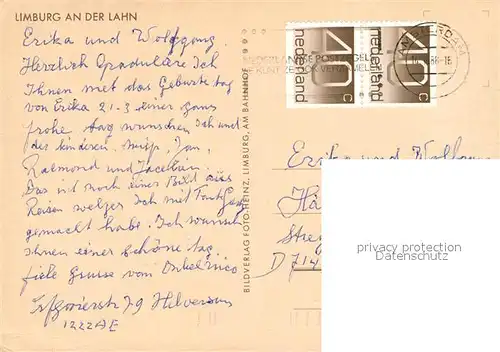 LIMBURG AN DER LAHN
Erika und Wolfgang.
Herzlich Graduläre Ich
Ihnen met das Geburtetag
von Erika 21-3 einer gans
frohe tag wunschen Ich und
der kinderen. Jan,
Raemond und
Das ist noch einer Bild aus
Reisen welges Ich mit
gemacht habe. Ich wunsch
Ihnen einer schöne tag.
fiele Grusse von Onkel
79 Helversum
1222AE
BILDVERLAG FOTO-HEINZ, LIMBURG, AM BAHNHOF
40 c
nederland
40 c
nederland
NEDERLANDSE POSTZEGELS
AMSTERDAM
Erika und
D 714
privacy protection
Datenschutz